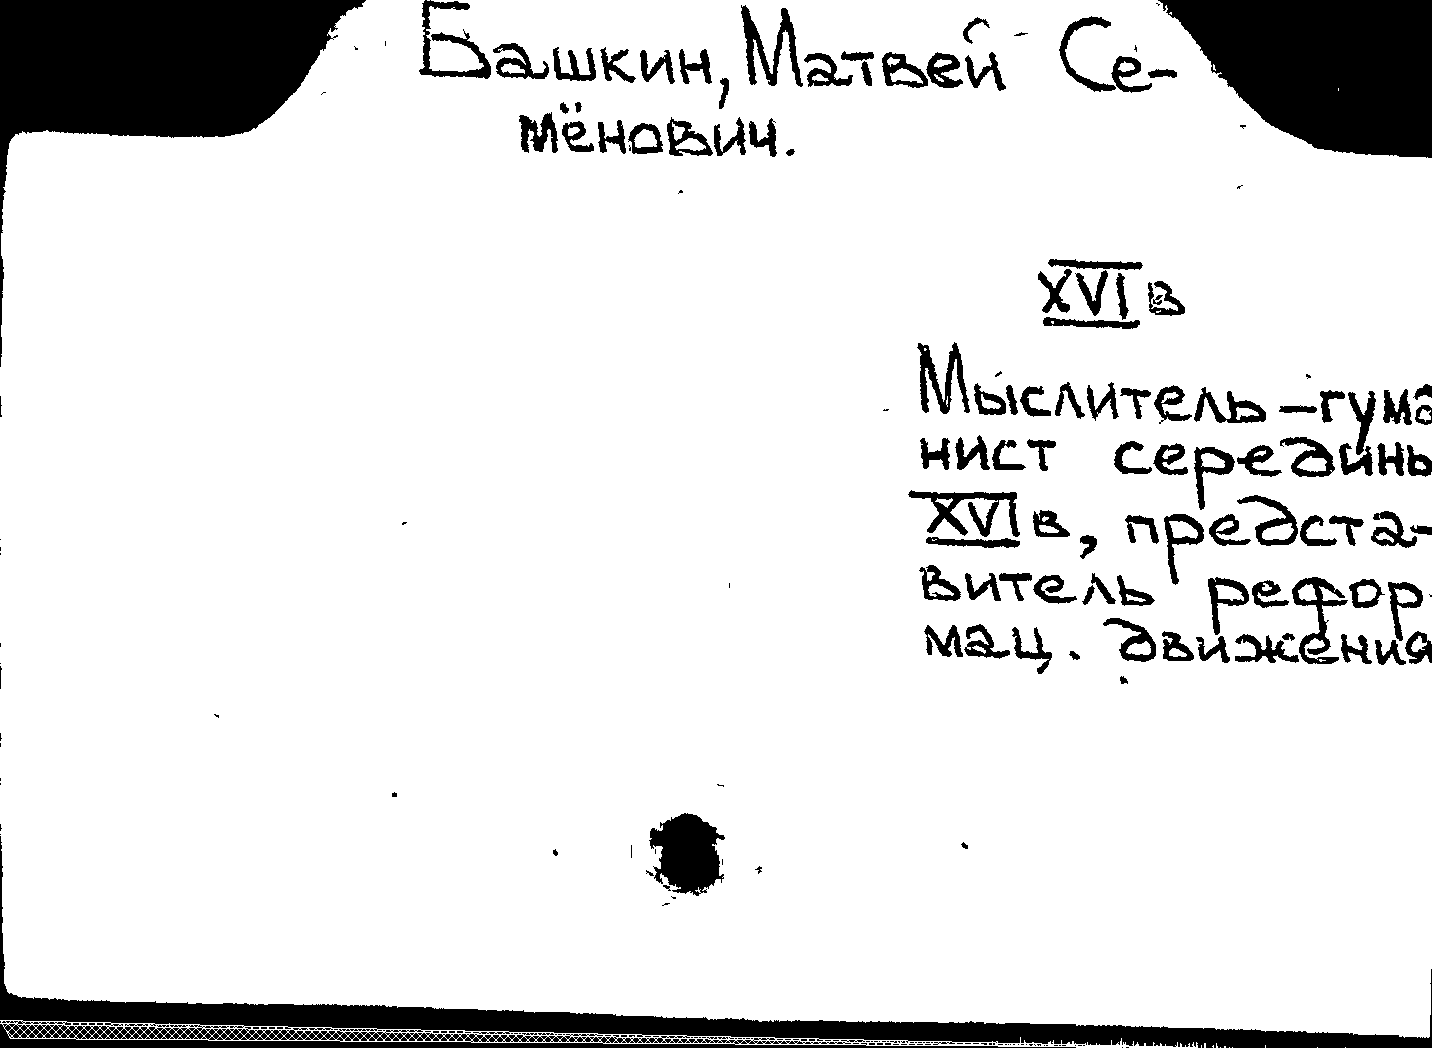 Башкин, Матвей Се-
мёнович.
XVI в
Мыслитель-гума
нист середины
XVI в, предста-
витель рефор-
мац. движения